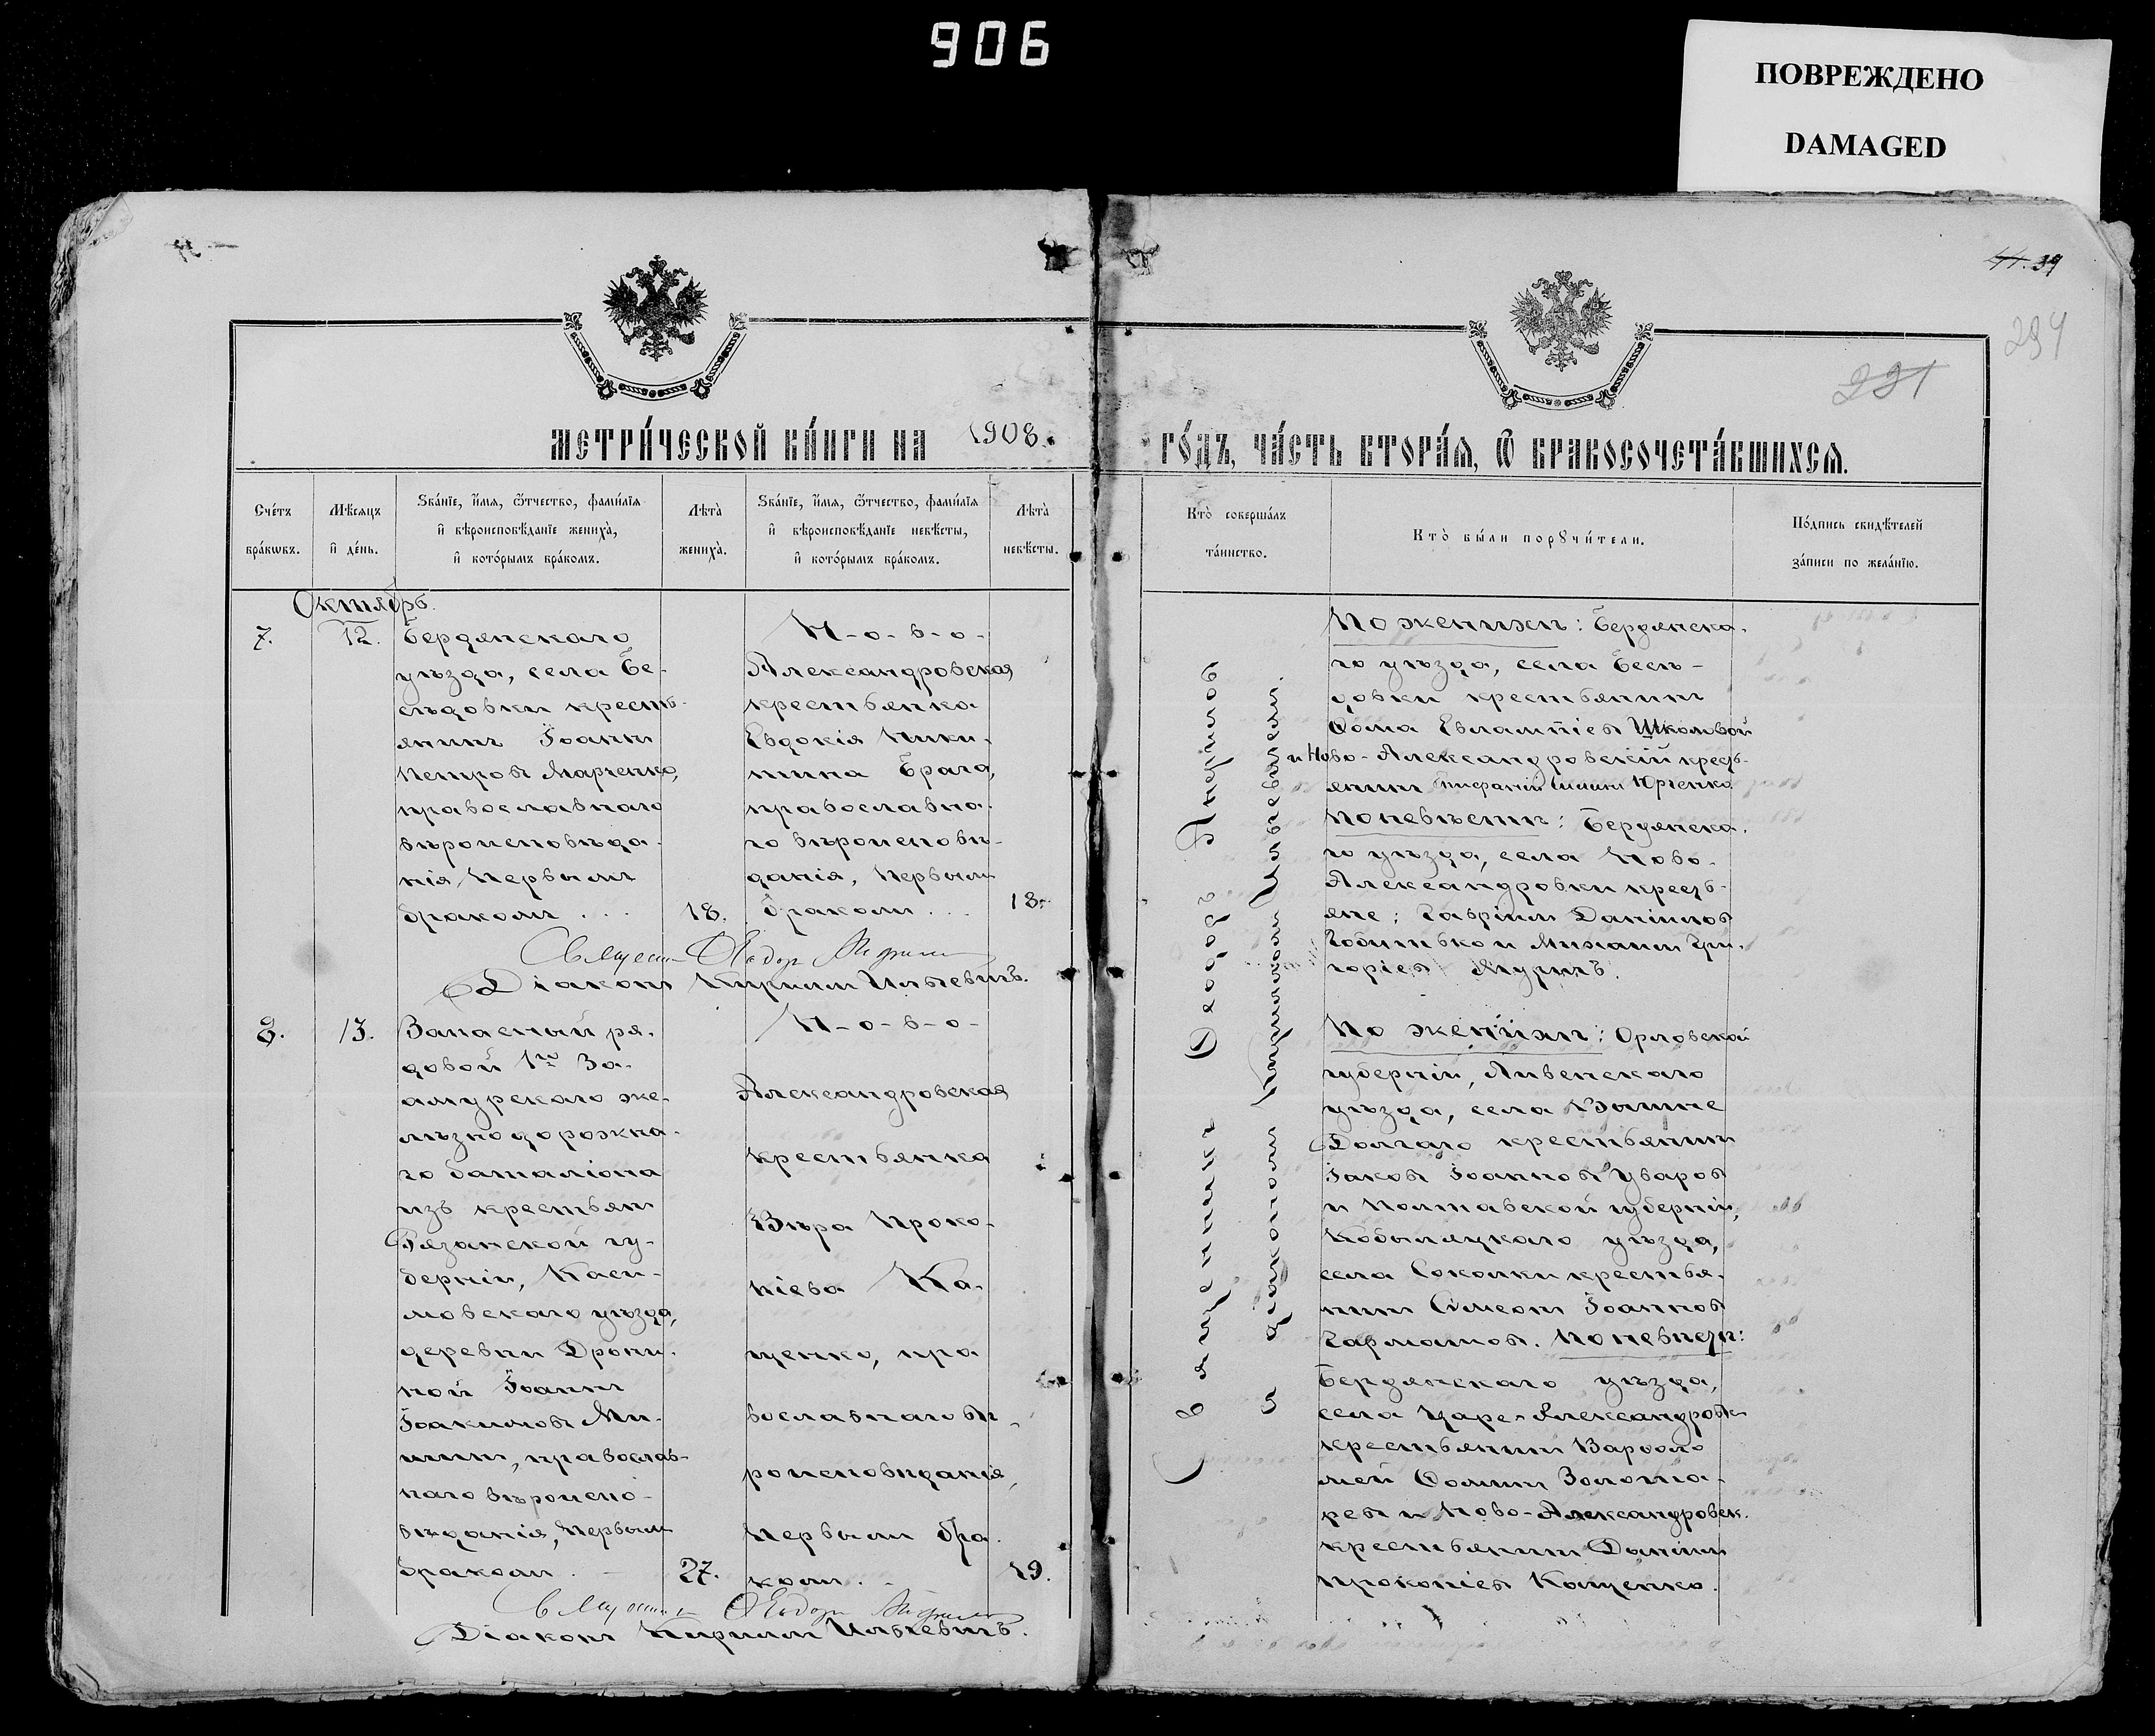 906
ПОВРЕЖДЕНО
DAMAGED
41. 39
294
291
МЕТРИ́ЧЕСКОЙ КНИ́ГИ НА 1908.
ГО́ДЪ, ЧА́СТЬ ВТОРА́Я, Ѿ БРАКОСОЧЕТА́ВШИХСЯ.
Сче́тъ
бра́кѡвъ.
Мѣ́сяцъ
и́ де́нь.
Ѕва́нїе, и́мя, ѻ́тчество, фами́лїя
и́ вѣроисповѣ́данїе жениха̀,
и́ кото́рымъ бра́комъ.
Лѣта̀
жениха̀.
Ѕва́нїе, и́мя, ѻ́тчество, фами́лїя
и́ вѣроисповѣ́данїе невѣ́сты,
и́ кото́рымъ бра́комъ.
Лѣта̀
невѣ́сты.
Кто̀ соверша́лъ
та́инство.
Кто̀ бы́ли порꙋчи́тели.
По́дпись свидѣ́телей
за́писи по жела́нїю.
Октябрь.
7.
12.
Бердянскаго
уѣзда, села Бе-
сѣдовки кресть-
янинъ Іоаннъ
Петровъ Марченко,
православнаго
вѣроисповѣда-
нія, первымъ
бракомъ . . .
18.
Н-о-в-о-
Александровская
крестьянка
Евдокія Ники-
тина Брага,
православна-
го вѣроисповѣ-
данія, первымъ
бракомъ . . .
18.
Священникъ Ѳеодоръ Андріановъ
и діаконъ Кириллъ Ильевичъ.
По женихѣ: Бердянска-
го уѣзда, села Бесѣ-
довки крестьянинъ
Ѳома Евлампіевъ Школовой
и Ново-Александровскій кресть-
янинъ Юрченко
По невѣстѣ: Бердянска-
го уѣзда, села Ново-
Александровки кресть-
яне: Гавріилъ Даніиловъ
и Михаилъ Гри-
горіевъ
Священ. Ѳеодоръ
Діаконъ Кириллъ Ильевичъ.
8.
13.
Запасный ря-
довой 1го За-
амурскаго же-
лѣзнодорожна-
го баталіона
изъ крестьянъ
Рязанской гу-
берніи, Каси-
мовскаго уѣзда,
деревни Дрони-
ной Іоаннъ
Іоакимовъ Ми-
шинъ, православ-
наго вѣроиспо-
вѣданія, первымъ
бракомъ . -
27.
Н-о-в-о-
Александровская
крестьянка
Вѣра Проко-
піева Ка-
щенко, пра
вославнаго вѣ-
роисповѣданія,
первымъ бра-
комъ . -
19.
По женихѣ: Орловской
губерніи, Ливенскаго
уѣзда, села Вышне
Долгаго крестьянинъ
Іаковъ Іоанновъ Уваровъ
и Полтавской губерніи,
Кобыляцкаго уѣзда,
села Соколки крестья-
нинъ Симеонъ Іоанновъ
Гарматовъ. По невѣстѣ:
Бердянскаго уѣзда,
села Царе-Александровки
крестьянинъ Варѳоло
мей Ѳоминъ Золота-
ревъ и Ново-Александровск.
крестьянинъ Даніилъ
Прокопіевъ Кащенко.
Священникъ Ѳеодоръ
Діаконъ Кириллъ Ильевичъ.